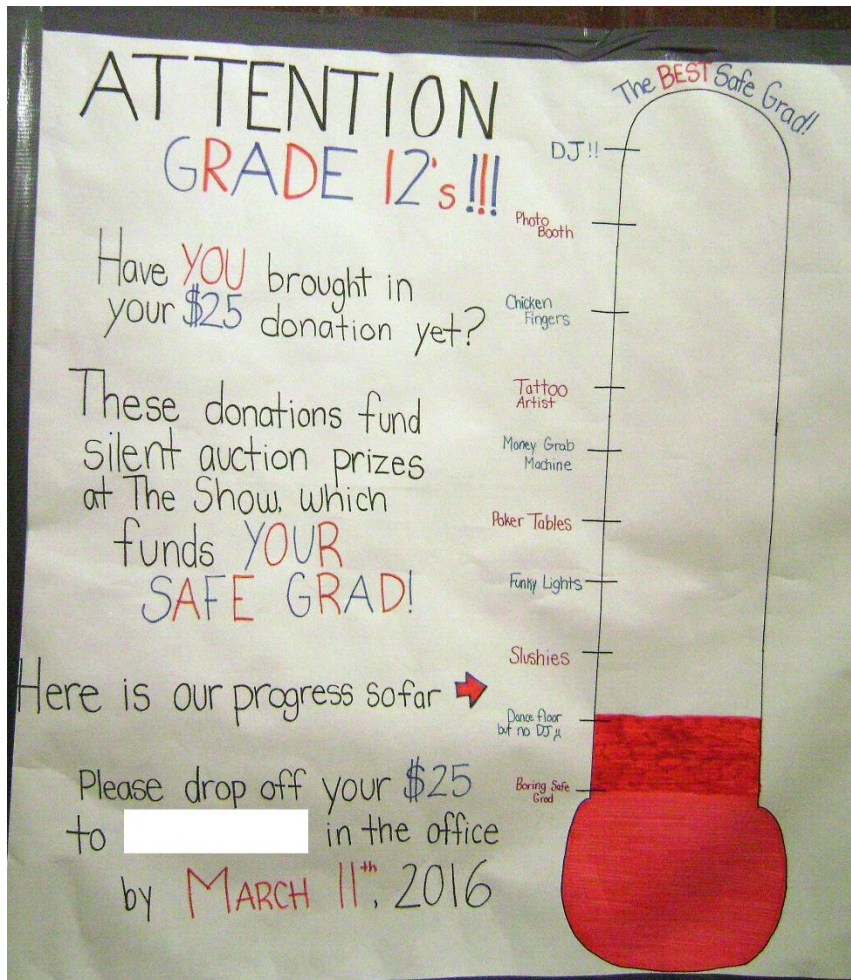 ATTENTION
GRADE 12's!!!
Have YOU brought in
your $25 donation yet?
These donations fund
silent auction prizes
at The Show, which
funds YOUR
SAFE GRAD!
Here is our progress so far
Please drop off your $25
to in the office
by MARCH 11th, 2016
The BEST Safe Grad!
DJ!!
Photo
Booth
Chicken
Fingers
Tattoo
Artist
Money Grab
Machine
Poker Tables
Funky Lights
Slushies
Dance floor
but no DJ :(
Boring Safe
Grad